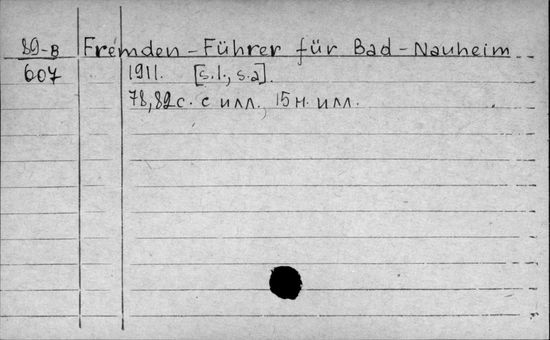 89-В Fremden-Führer für Bad-Nauheim
607 1911. [s.l., s.a].
78,82с. с илл., 15 н. илл.